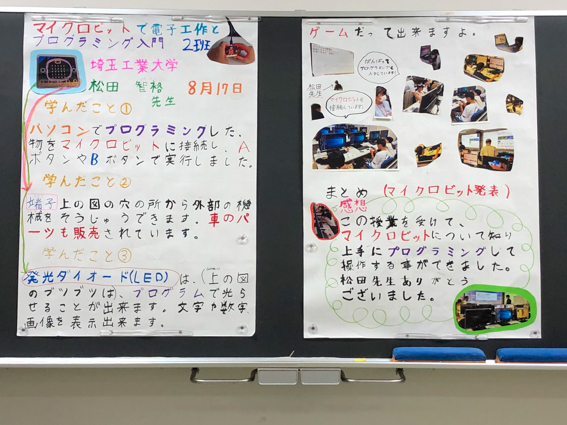 マイクロビットで電子工作と
プログラミング入門 2班
埼玉工業大学
松田 智裕
先生
8月17日
学んだこと①
パソコンでプログラミングした、
物をマイクロビットに接続し、A
ボタンやBボタンで実行しました。
学んだこと②
端子上の図の穴の所から外部の機
械をそうじゅうできます。車のパ
ーツも販売されています。
学んだこと③
発光ダイオード(LED)は、(上の図
のブツブツは、プログラムで光ら
せることが出来ます。文字や数字
画像を表示出来ます。
ゲームだって出来ますよ。
松田
先生
マイクロビットを
接続しています!
まとめ (マイクロビット発表)
感想
この授業を受けて、
マイクロビットについて知り
上手にプログラミングして
操作する事ができました。
松田先生ありがとう
ございました。